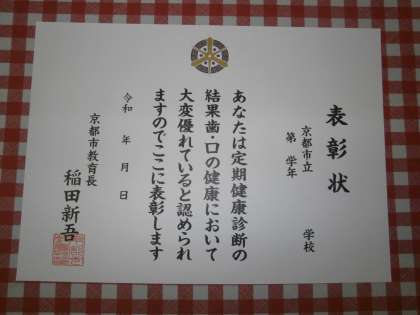 表彰状
京都市立 学校
第 学年
あなたは定期健康診断の
結果歯・口の健康において
大変優れていると認められ
ますのでここに表彰します
令和 年 月 日
京都市教育長
稲田新吾